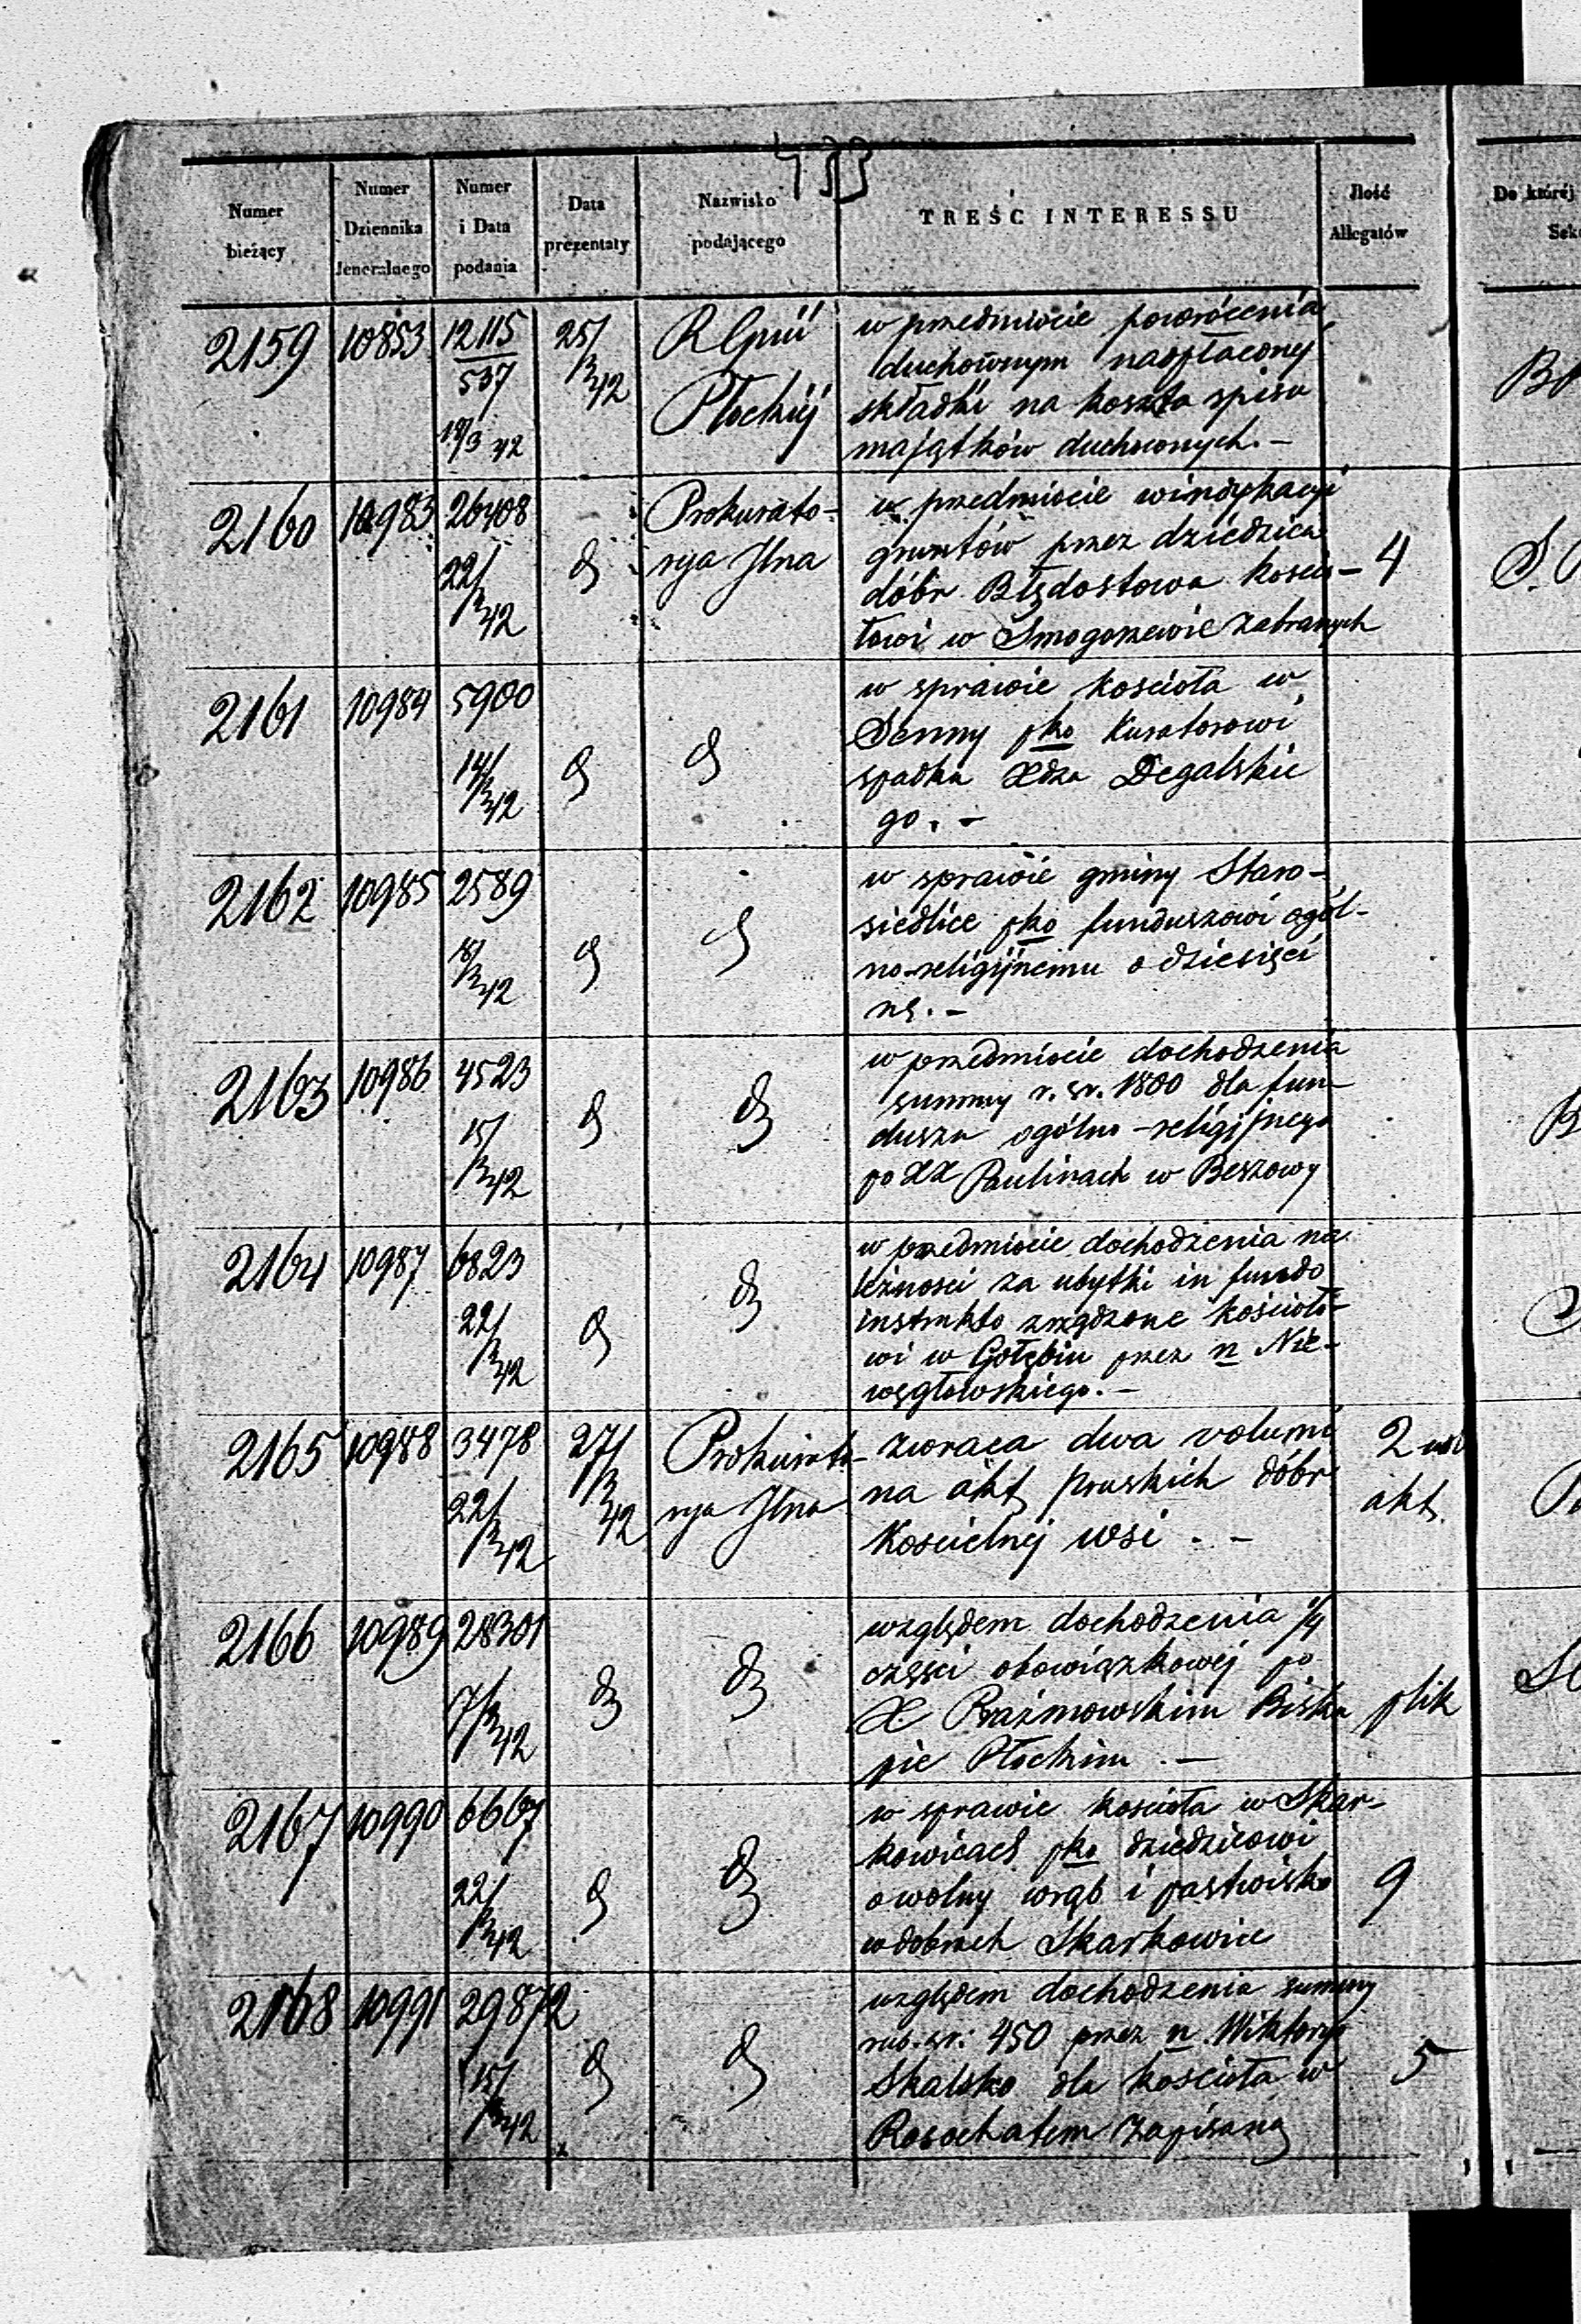 433
Numer bieżący
Numer Dziennika Jeneralnego
Numer i Data podania
Data prezentaty
Nazwisko podającego
TREŚĆ INTERESSU
Ilość Allegatów
Do której
2159 10853 12115 25/
537 /3 42
19/3 42
R Gnii
Płockiej
w przedmiocie powrócenia
duchownym nadpłaconej
składki na koszta spisu
majątków duchownych. –
2160 10983 26408
22/
/3 42
d
Prokurato-
rya Jlna
w przedmiocie windykacyi
gruntów przez dziedzica
dóbr Błędostowa kościo-
łowi w Smogorzewie zabranych
4
2161 10984 5900
14/
/3 42
d d
w sprawie kościoła w
Sanny pko Kuratorowi
spadku Xdza Degalskie
go. –
2162 10985 2589
18/
/3 42
d d
w sprawie gminy Staro-
siedlice pko funduszowi ogól-
no-religijnemu o dziesięci
nę. –
2163 10986 4523
15/
/3 42
d d
w przedmiocie dochodzenia
summy r. sr. 1800 dla fun-
duszu ogólno-religijnego
po XX Paulinach w Beszowy
2164 10987 6823
22/
/3 42
d d
w przedmiocie dochodzenia na
leżności za ubytki in fundo
instrukto zrządzone kościoło-
wi w Gołębiu przez n Nie-
węgłowskiego. –
2165 10988 3478 27/
22/ /3 42
/3 42
Prokurato-
rya Jlna
zwraca dwa volumi
na akt pruskich dóbr
Kościelnej wsi . –
2 vol
akt.
2166 10989 28301
7/
/3 42
d d
względem dochodzenia 1/4
części obowiązkowej po
X Prażmowskim Bisku
pie Płockim . –
plik
2167 10990 6667
22/
/3 42
d d
w sprawie kościoła w Skar-
kowicach pko dziedzicowi
o wolny wrąb i pastwisko
w dobrach Skarkowice
9
2168 10991 29872
15/
/3 42
d d
względem dochodzenia summy
rub. sr: 450 przez n. Wiktoryę
Skalską dla kościoła w
Rosochatem zapisaną
5